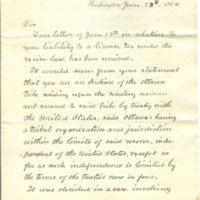 Washington June 23d 1864
Sir
Your letter of June 13th in relation to
your liability to a license tax under the
law, has been received.
It would seem from your statement
that you are an Indian of the Ottawa
tribe residing upon the
and secured to said tribe by treaty with
the United States, said Ottawas having
a tribal organization and jurisdiction
within the limits of said reserve, inde-
pendent of the United States, except so
far as such independence is limited by
the terms of the treaties now in force.
It was decided in a case involving